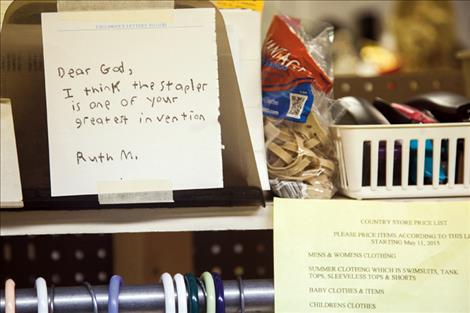 CHILDREN'S LETTERS TO GOD
Dear God,
I think the stapler
is one of your
greatest invention
Ruth M.
COUNTRY STORE PRICE LIST
PLEASE PRICE ITEMS ACCORDING TO THIS
STARTING May 11, 2015
MENS & WOMENS CLOTHING
SUMMER CLOTHING WHICH IS SWIMSUITS, TANK
TOPS, SLEEVELESS TOPS & SHORTS
BABY CLOTHES
CHILDRENS CLOTHES